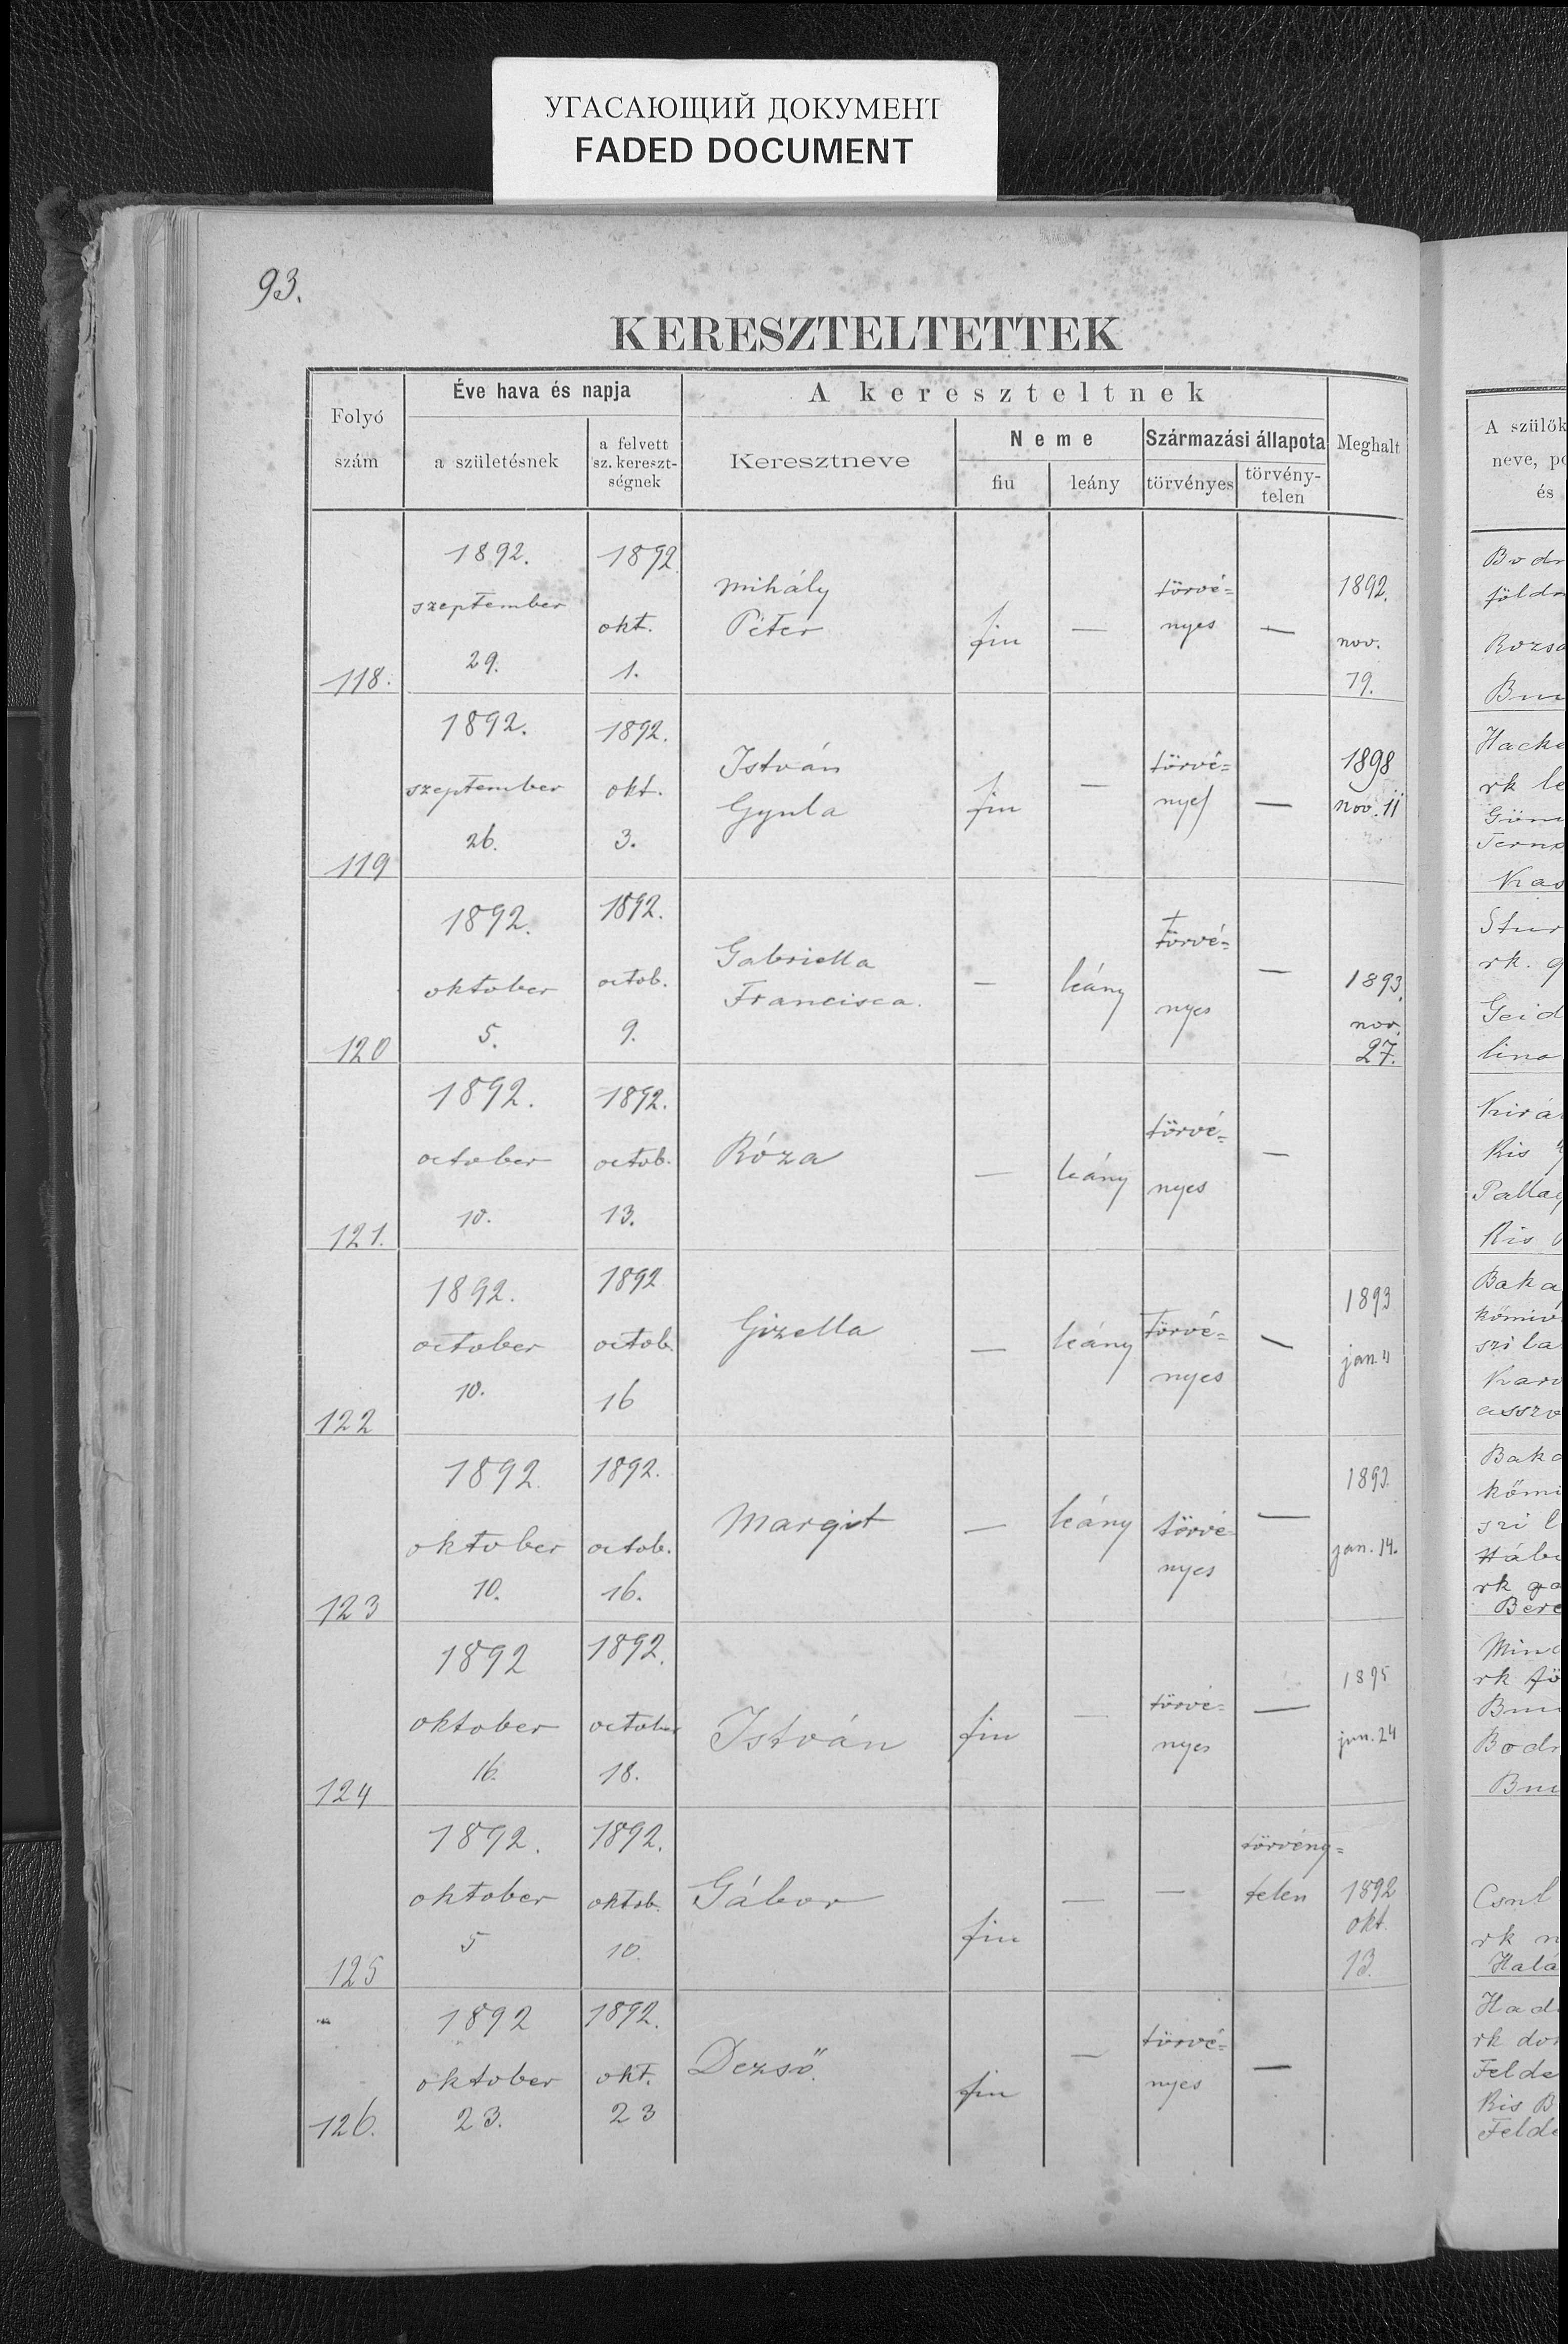 УГАСАЮЩИЙ ДОКУМЕНТ
FADED DOCUMENT
93.
KERESZTELTETTEK
Folyó szám
Éve hava és napja
a születésnek
a felvett sz. kereszt-ségnek
A kereszteltnek
Keresztneve
Neme
fiu
leány
Származási állapota
törvényes
törvény-telen
Meghalt
A szülők
neve, po
és
118. 1892. szeptember 29. 1892. okt. 1. Mihály Péter fiu — törvé= nyes — 1892. nov. 19.
119 1892. szeptember 26. 1892. okt. 3. István Gyula fiu — törvé= nyes — 1898 nov. 11
120 1892. oktober 5. 1892. octob. 9. Gabriella Francisca. — leány törvé= nyes — 1893. nov. 27.
121. 1892. october 10. 1892. octob. 13. Róza — leány törvé= nyes —
122 1892. october 10. 1892 octob. 16 Gizella — leány törvé= nyes — 1893 jan. 11
123 1892. oktober 10. 1892. octob. 16. Margit — leány törvé nyes — 1893. jan. 14.
124 1892 oktober 16. 1892. october 18. István fiu — törvé= nyes — 1895 jun. 24
125 1892. oktober 5 1892. oktob. 10. Gábor fiu — — törvény= telen 1892 okt. 13.
126. 1892 oktober 23. 1892. okt. 23 Dezső. fiu — törvé= nyes —
Bodr
földm
Rozsa
Hacke
rk le
Kas
Stur
rk. g
Geid
lina
Kirá
Kis
Pallag
Kis
Baka
kőmiv
szila
asszo
Bako
kőmi
szil
Hábo
rk ga
Bere
rk fö
Bodr
Csul
rk n
Halá
Had
rk do
Felde
Kis B
Felde